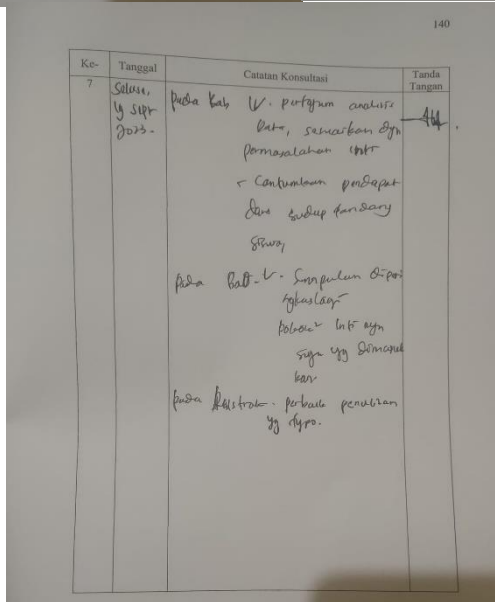 140
Ke- Tanggal Catatan Konsultasi Tanda Tangan
7 Selasa, Pada Bab IV. pertajam analisis
19 Sept data, sesuaikan dgn
2023. permasalahan
- Cantumkan pendapat
dari sudup pandang
siswa,
Pada Bab V. Simpulan diper
lagi
pokok² inti
saja yg dimasuk
kan.
pada Abstrak. perbaiki penulisan
yg typo.